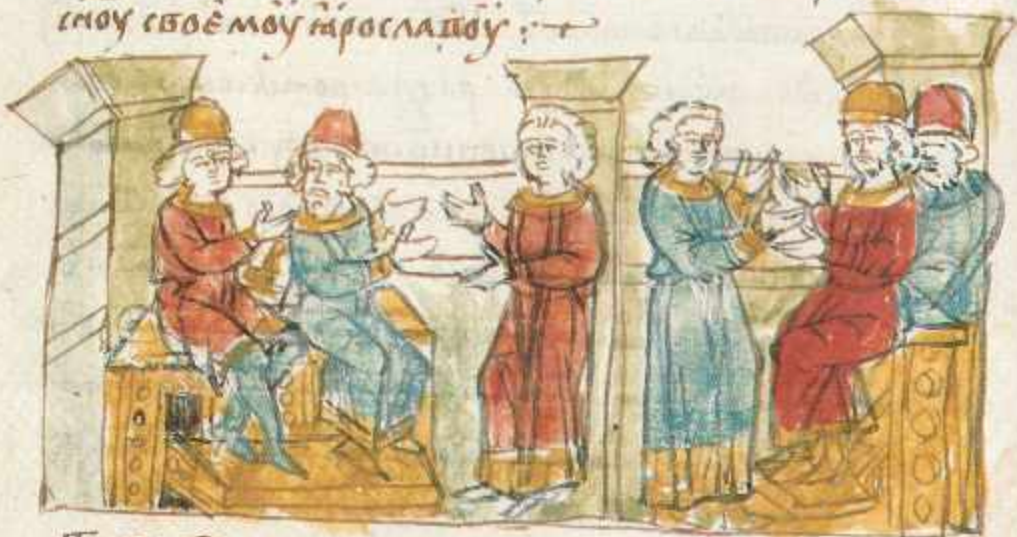 сн҃оу своемоу ꙗрославоу :·